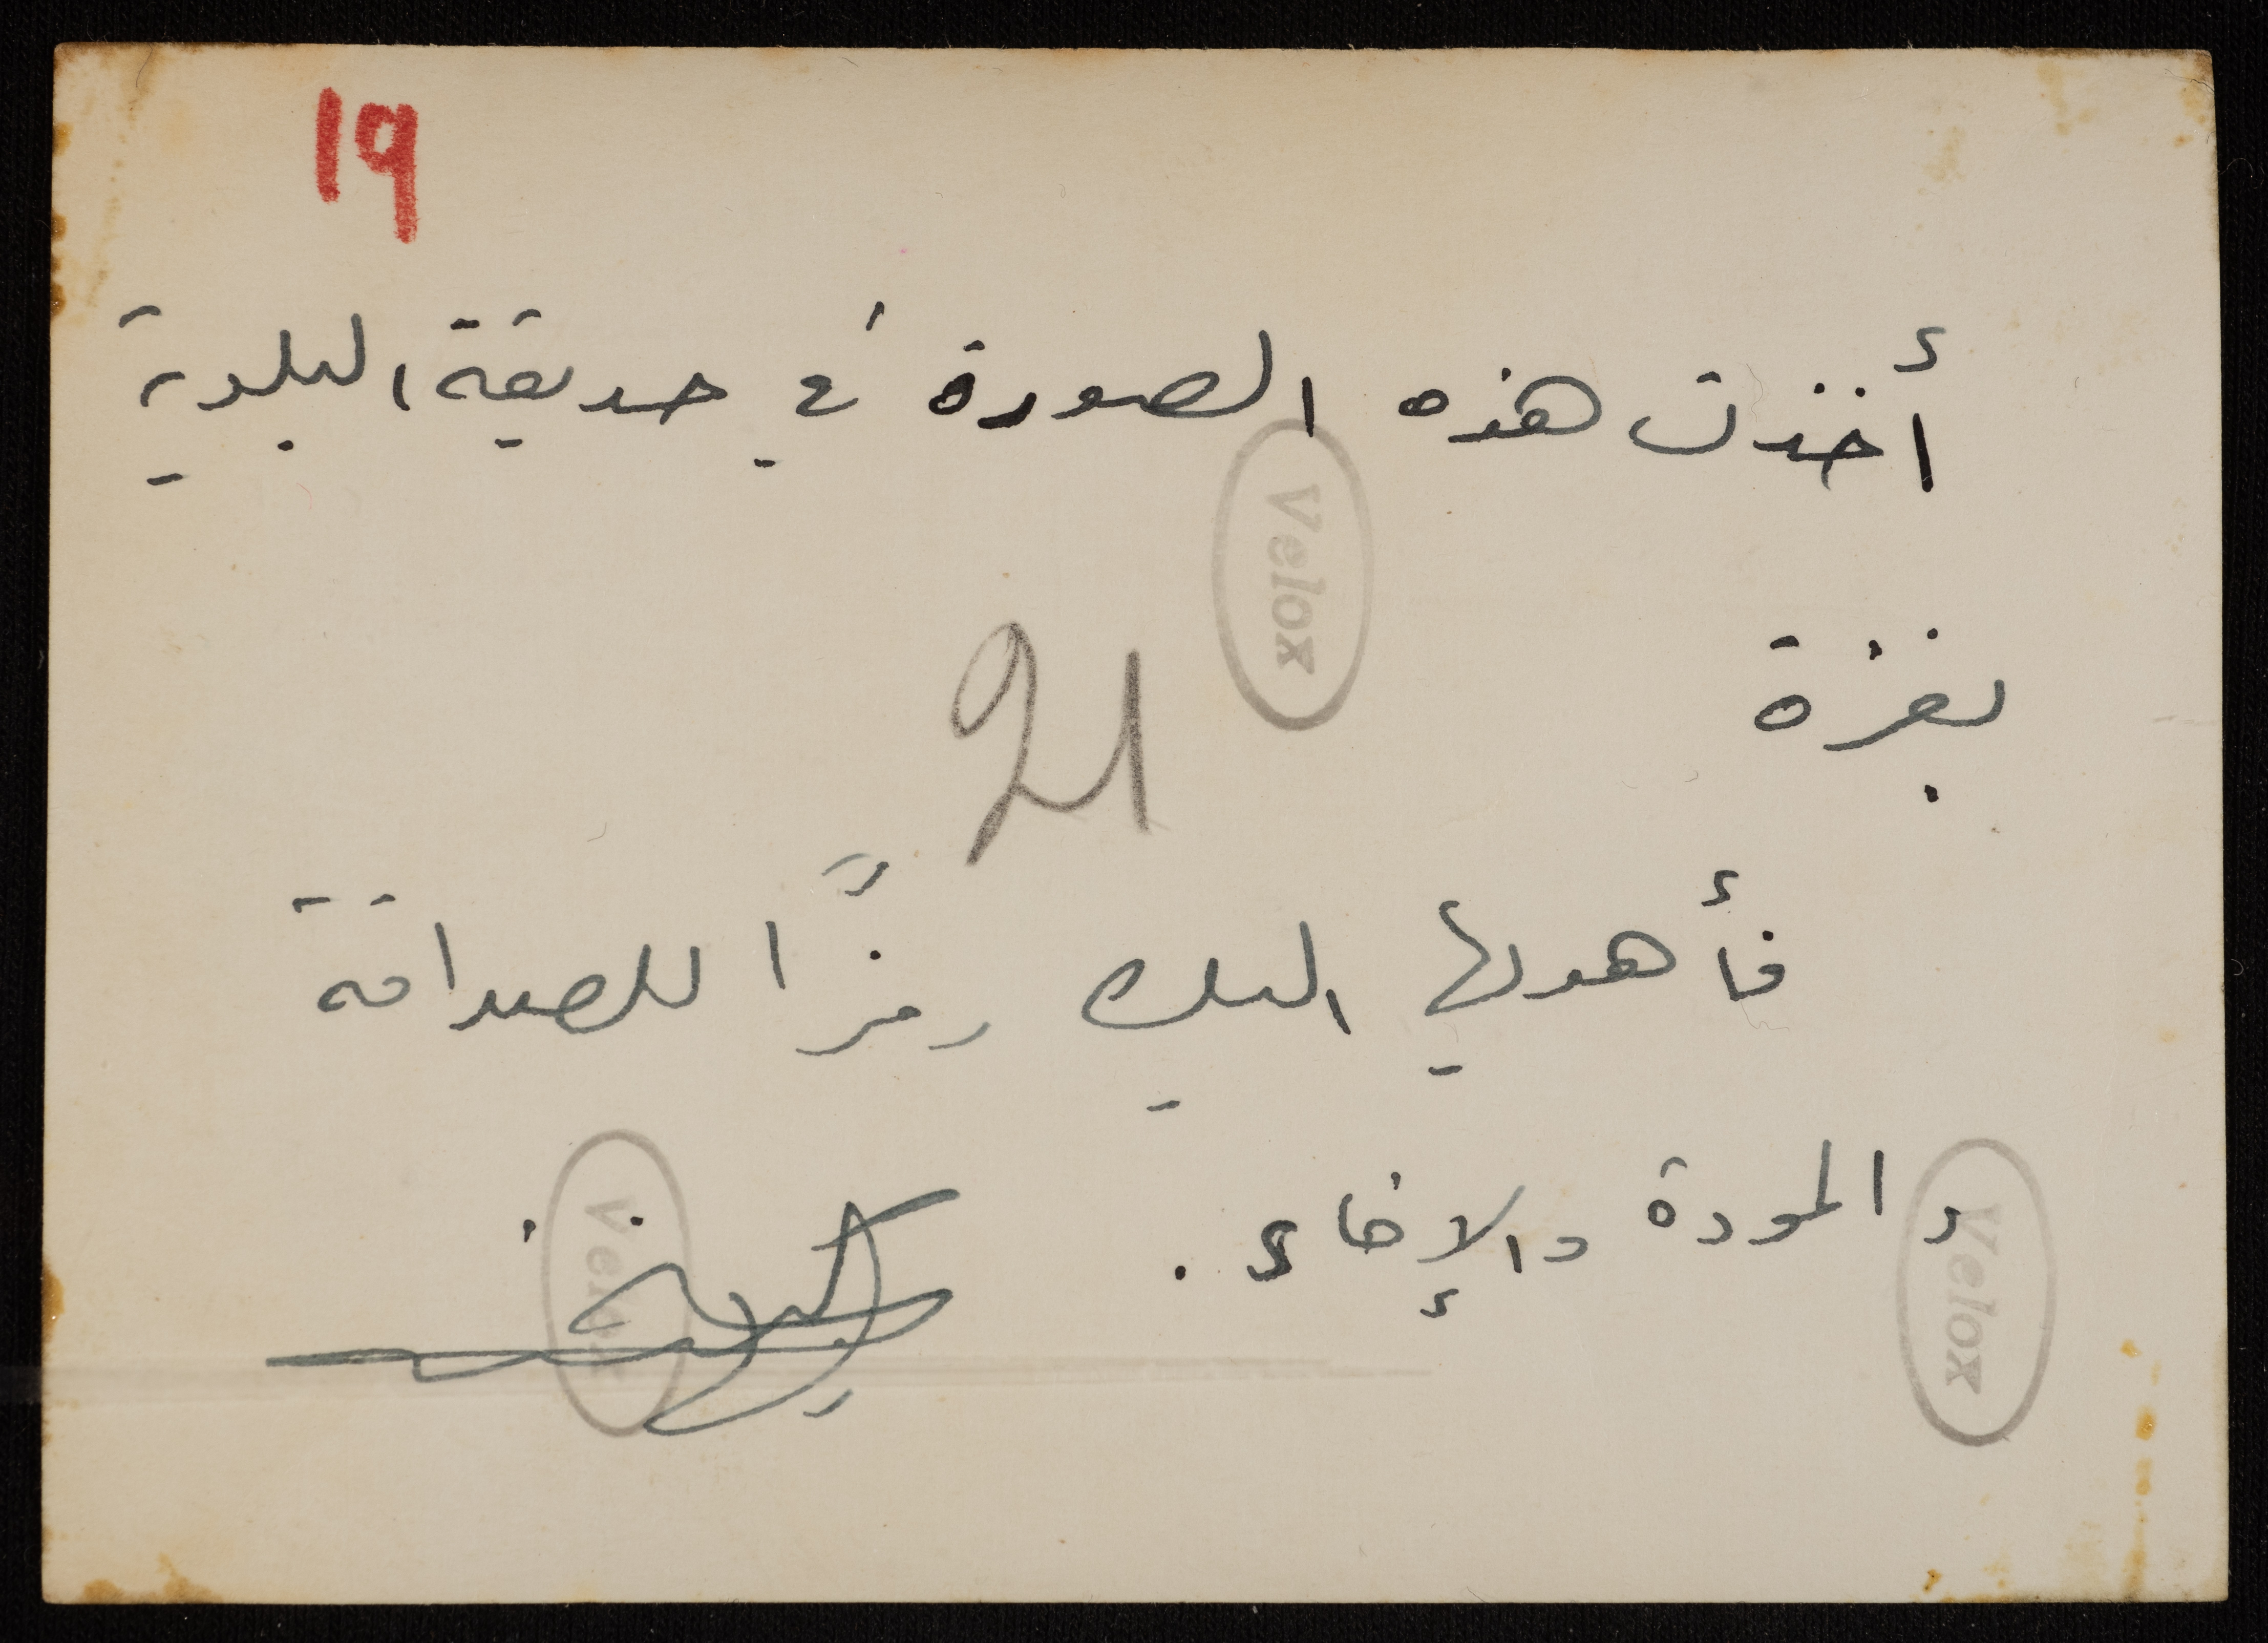 19
أخذت هذه الصورة في حديقة البلدية
Velox
بغزة
21
فأهديها اليك رمزًا للصداقة
و المودة والإخاء .
Velox
Velox